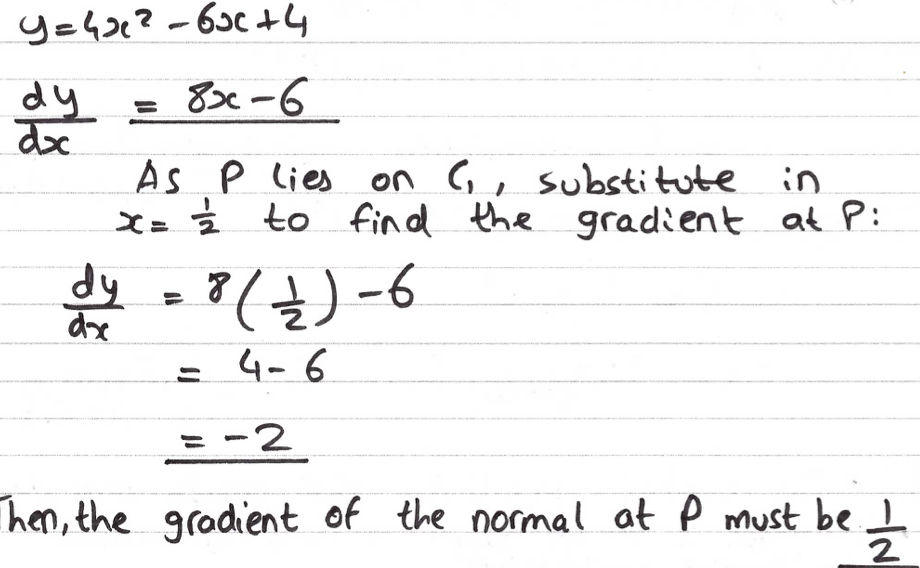 y=4x² - 6x + 4
dy/dx = 8x - 6
As P lies on C₁, substitute in
x = 1/2 to find the gradient at P:
dy/dx = 8(1/2) - 6
= 4 - 6
= -2
Then, the gradient of the normal at P must be 1/2